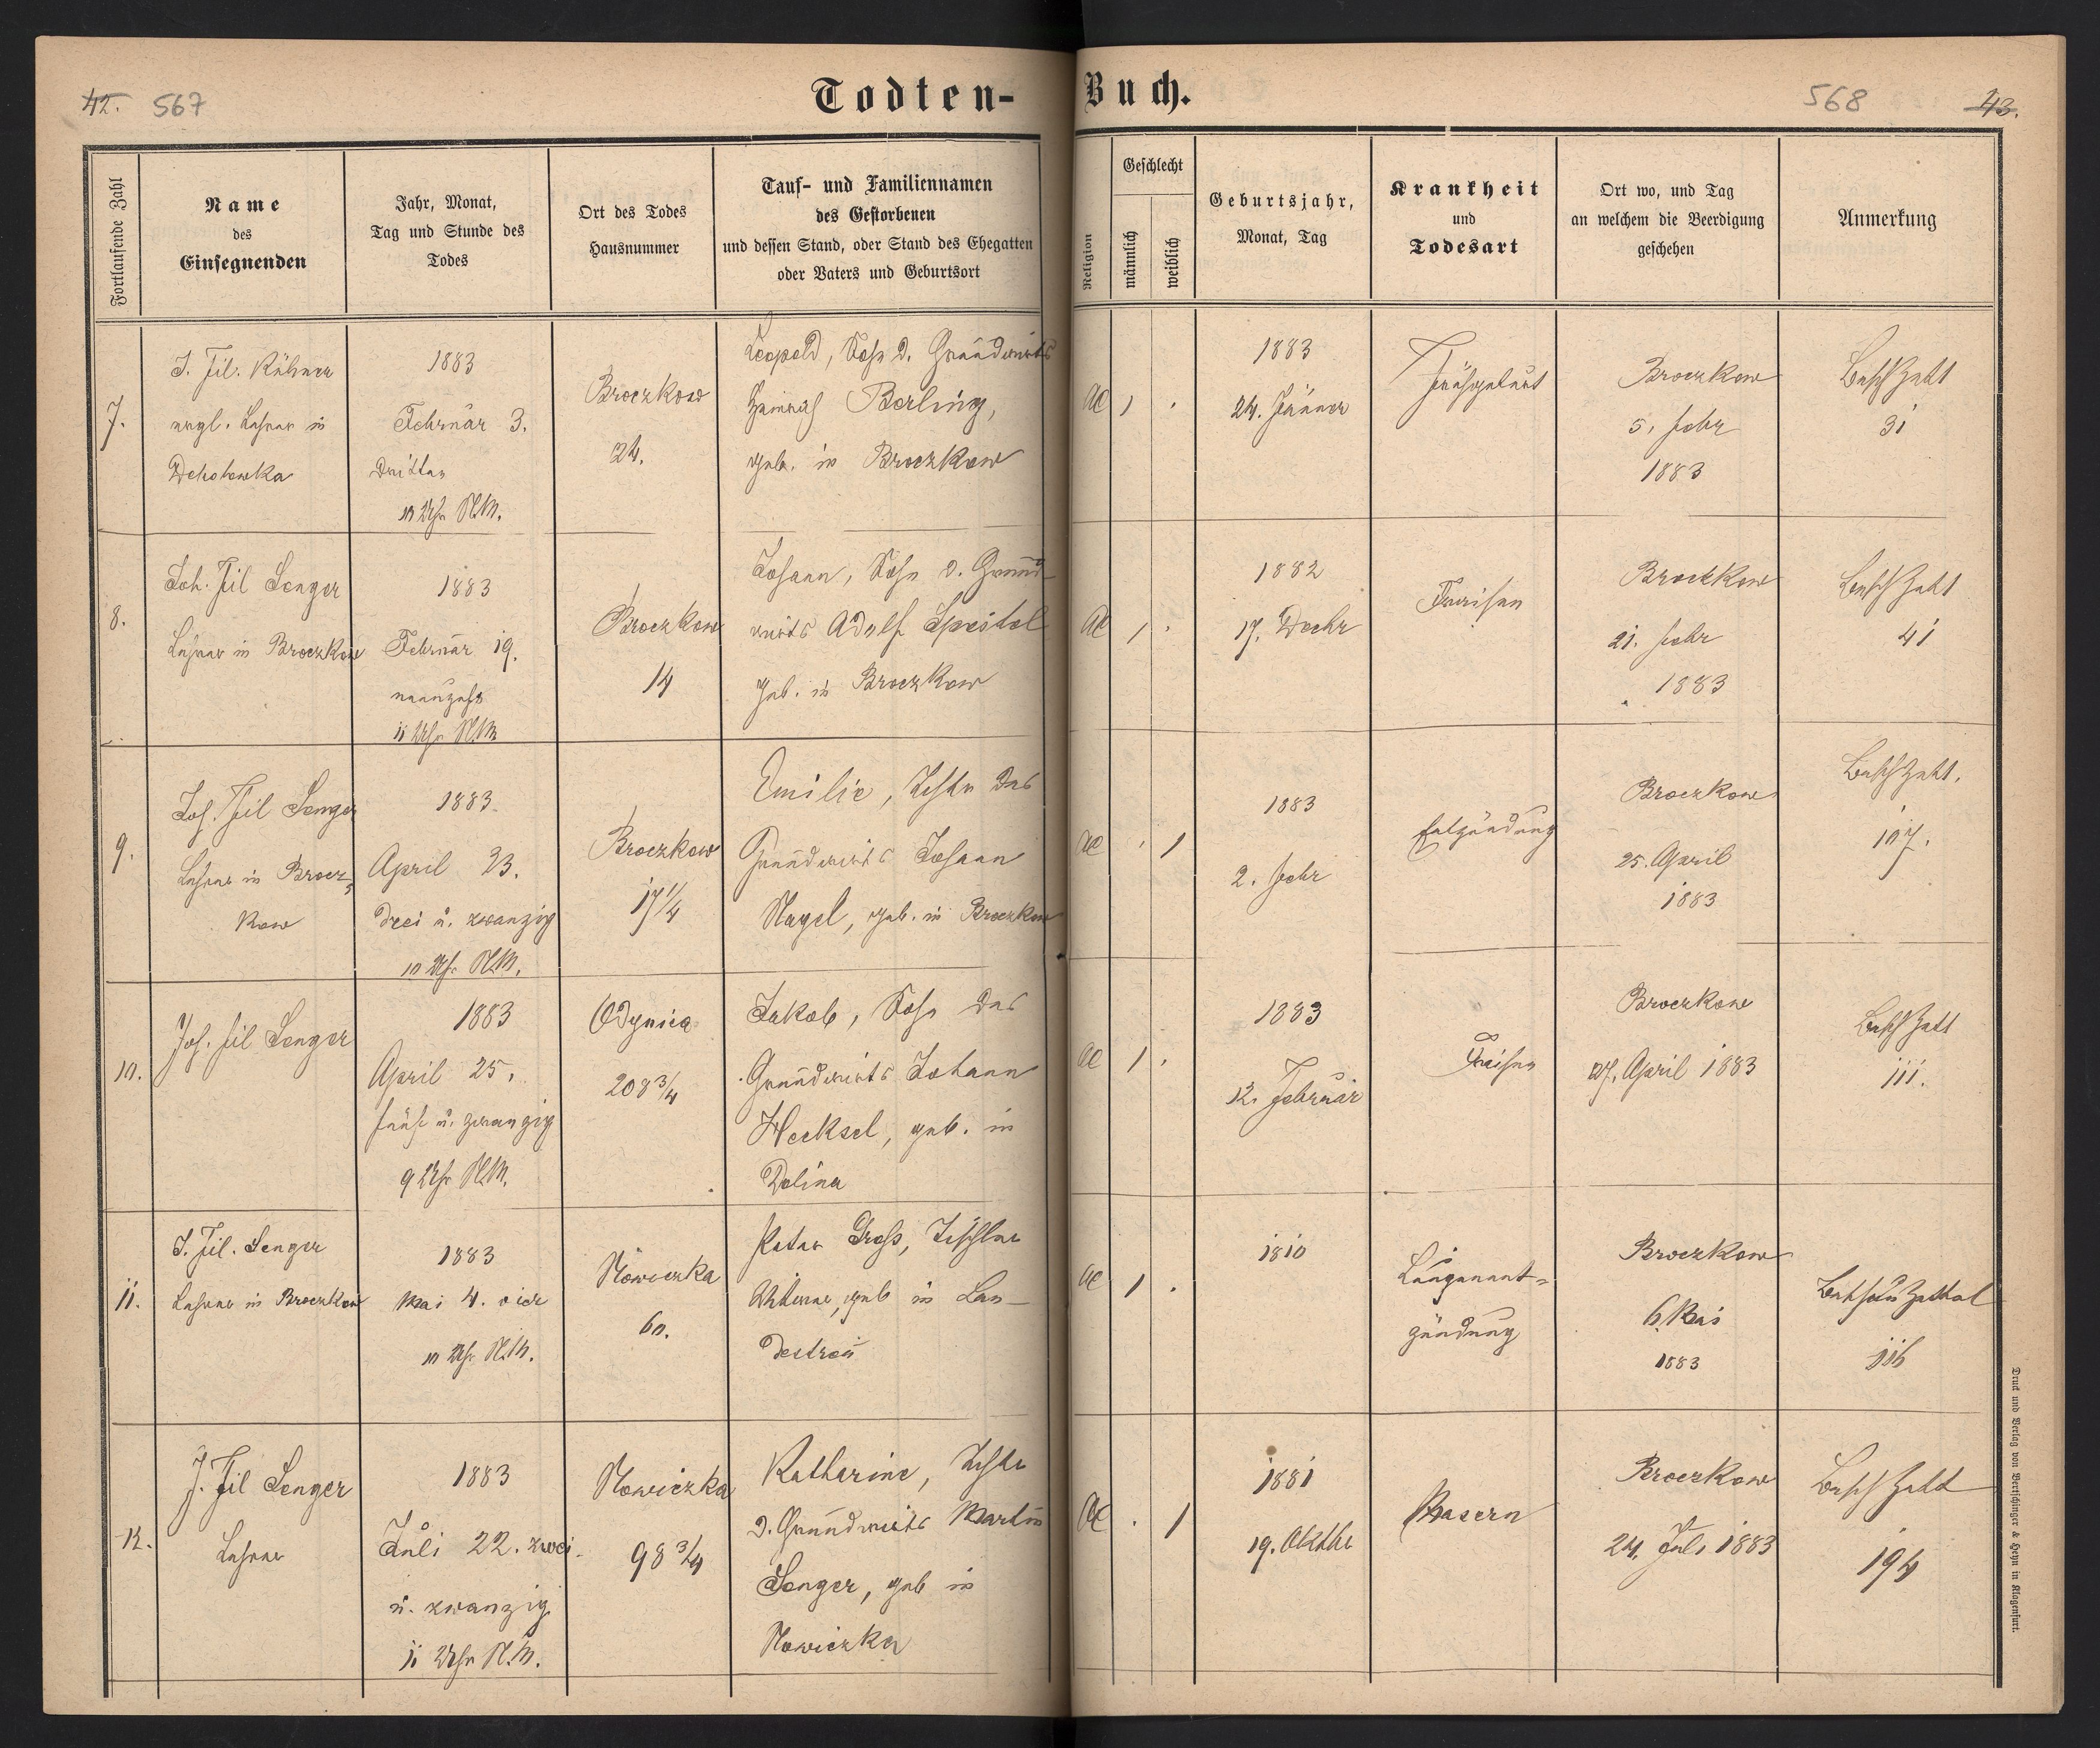 42. 567
Todten-Buch.
568 43.
Fortlaufende Zahl
Name
des
Einsegnenden
Jahr, Monat,
Tag und Stunde des
Todes
Ort des Todes
Hausnummer
Tauf- und Familiennamen
des Gestorbenen
und dessen Stand, oder Stand des Ehegatten
oder Vaters und Geburtsort
Religion
Geschlecht
männlich
weiblich
Geburtsjahr,
Monat, Tag
Krankheit
und
Todesart
Ort wo, und Tag
an welchem die Beerdigung
geschehen
Anmerkung
7.
J. Fil. Köhner
evgl. Lehrer in
1883
Februar 3.
dritten
10 Uhr N.M.
Broczkow
24.
Leopold, Sohn d. Grundwirts
Heinrich Berling,
geb. in Broczkow
AC
1
.
1883
24. Jänner
Frühgeburt
Broczkow
5. Febr
1883
BeschZettl
31
8.
Joh. Fil Senger
Lehrer in Broczkow
1883
Februar 19.
neunzehn
11 Uhr N.M.
Broczkow
14
Johann, Sohn d. Grund-
wirts Adolf Speitel
geb. in Broczkow
AC
1
.
1882
17. Decbr
Fraisen
Broczkow
21. Febr
1883
BeschZettl
41
9.
Joh. Fil Senger
Lehrer in Brocz-
kow
1883.
April 23.
drei u. zwanzig
10 Uhr N.M.
Broczkow
17 1/4
Emilie, Tochter des
Grundwirts Johann
Nagel, geb. in Broczkow
AC
.
1
1883
2. Febr
Entzündung
Broczkow
25. April
1883
BeschZettl.
107.
10.
Joh. Fil Senger
1883
April 25.
fünf u. zwanzig
9 Uhr N.M.
Odynica
208 3/4
Jakob, Sohn des
Grundwirts Johann
Hecksel, geb. in
Dolina
AC
1
.
1883
12. Februar
Fraisen
Broczkow
27. April 1883
BeschZettl
111.
11.
J. Fil. Senger
Lehrer in Broczkow
1883
Mai 4. vier
10 Uhr N.M.
Nowiczka
60.
Peter Gross, Tischler
Witwer, geb in Lan-
destreü
AC
1
.
1810
Lungenent-
zündung
Broczkow
6. Mai
1883
116
12.
J. Fil Senger
Lehrer
1883
Juli 22. zwei
u. zwanzig
11 Uhr N.M.
Nowiczka
98 3/4
Katharine, Tochter
d. Grundwirts Martin
Senger, geb in
Nowiczka
AC
.
1
1881
19. Oktbr
Masern
Broczkow
24. Juli 1883
BeschZettl
194
Druck und Verlag von Bertschinger & Heyn in Klagenfurt.